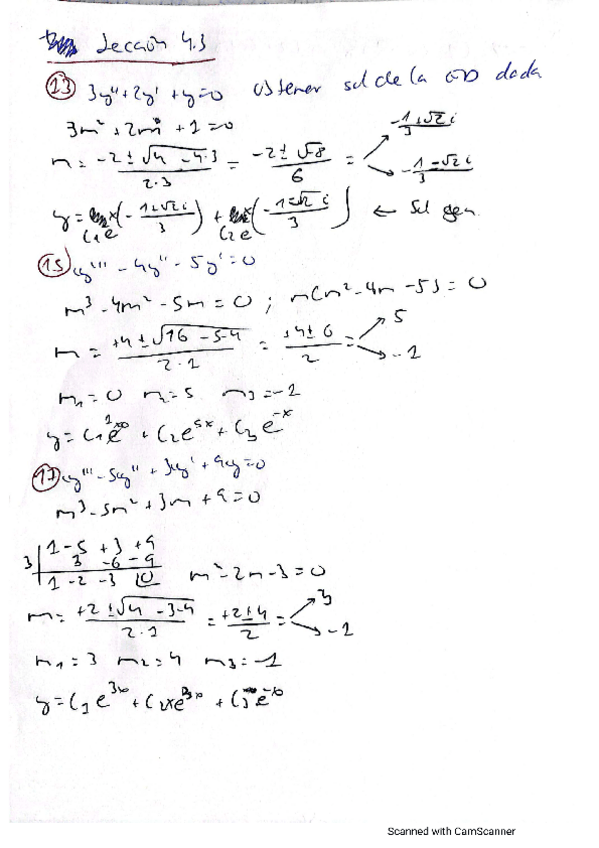 Lección 4.3
13 3y'' + 2y' + y = 0 obtener sol de la ED dada
3m² + 2m + 1 = 0
m = (-2 ± √(4 - 4·3))/(2·3) = (-2 ± √-8)/6 = → (-1+√2 i)/3
→ (-1-√2 i)/3
y = C₁e^x(-(1+√2 i)/3) + C₂e^x(-(1-√2 i)/3) ← Sol gen.
15 y''' - 4y'' - 5y' = 0
m³ - 4m² - 5m = 0 ; m(m² - 4m - 5) = 0
m = (+4 ± √(16 - 5·4))/(2·1) = (+4 ± 6)/2 = → 5
→ -1
m₁ = 0 m₂ = 5 m₃ = -1
y = C₁e + C₂e^5x + C₃e^-x
17 y''' - 5y'' + 3y' + 9y = 0
m³ - 5m² + 3m + 9 = 0
1 - 5 + 3 + 9
3 3 - 6 - 9
1 - 2 - 3 0 m² - 2m - 3 = 0
m = (+2 ± √(4 - 3·4))/(2·1) = (+2 ± 4)/2 = → 3
→ -1
m₁ = 3 m₂ = 4 m₃ = -1
y = C₁e^3x + C₂xe^3x + C₃e^-x
Scanned with CamScanner